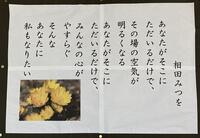 相田みつを
あなたがそこに
ただいるだけで、
その場の空気が
明るくなる
あなたがそこに
ただいるだけで、
みんなの心が
やすらぐ
そんな
あなたに
私もなりたい